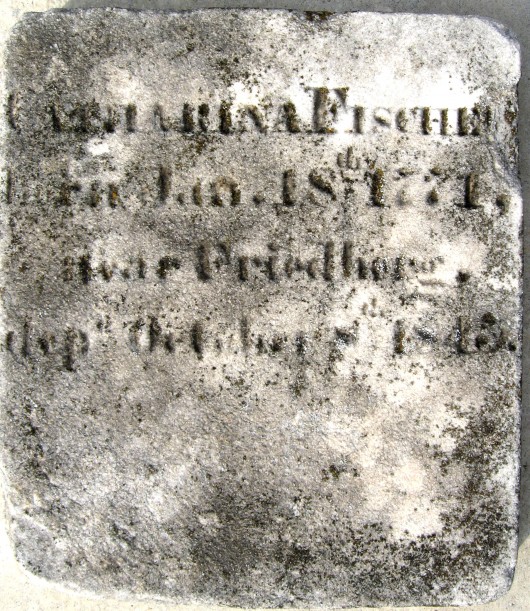 CATHARINA FISCHER
born Jan. 18th 1771,
near Friedberg,
depd October 1845.